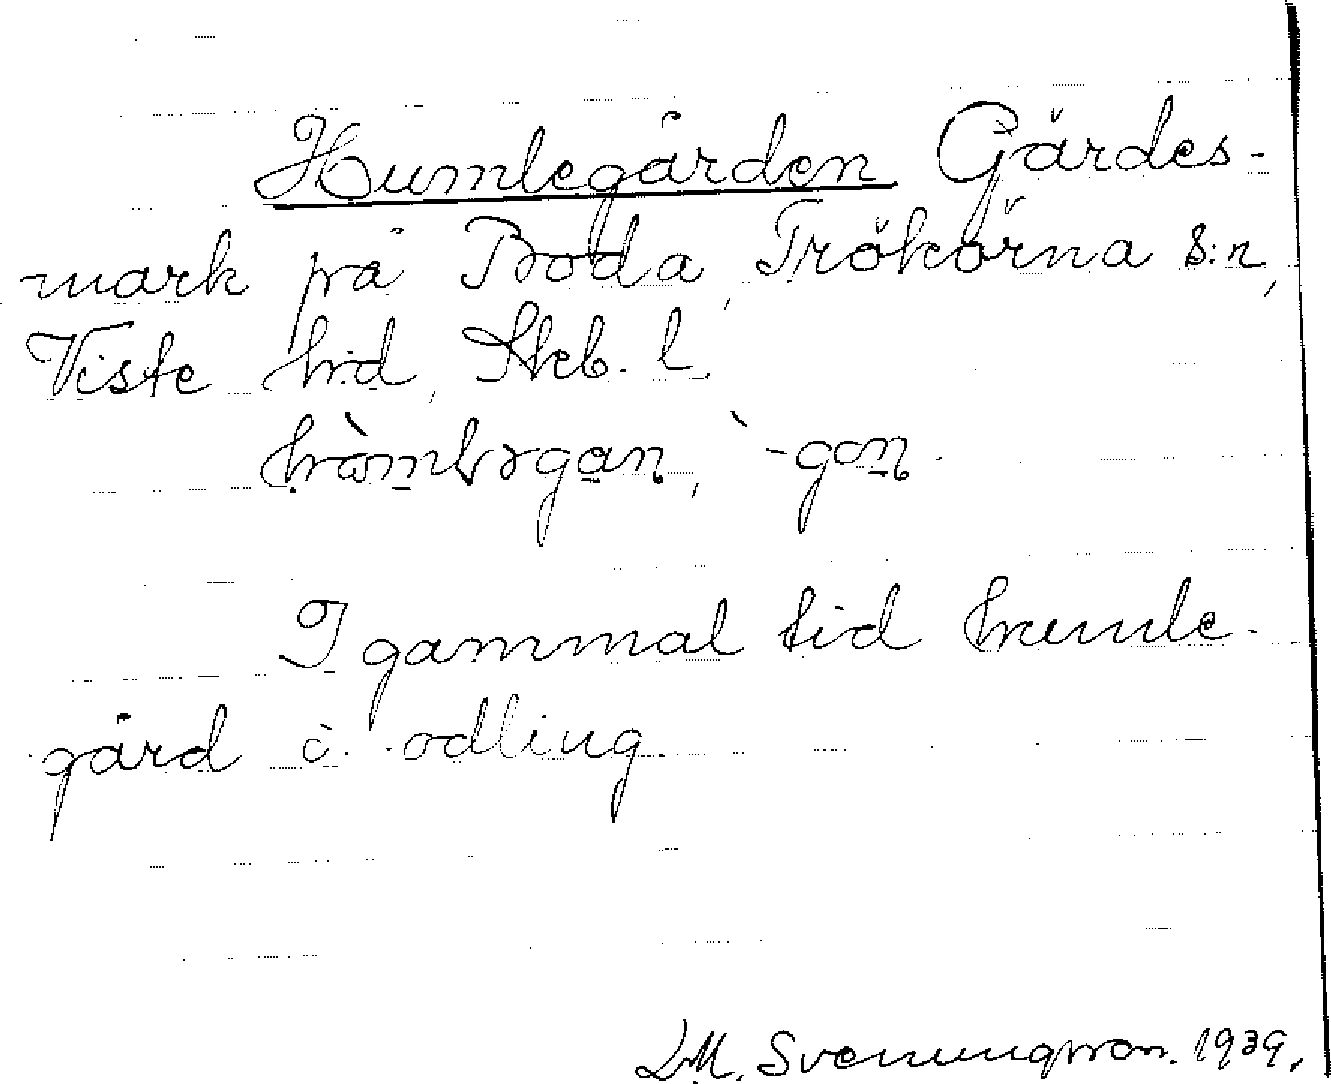 Humlegården Gärdes-
mark på Boda, Trökörna s:n,
Viste hd, Skb. l.
I gammal tid humle-
gård o. odling.
D.M. Svenungsson. 1939.